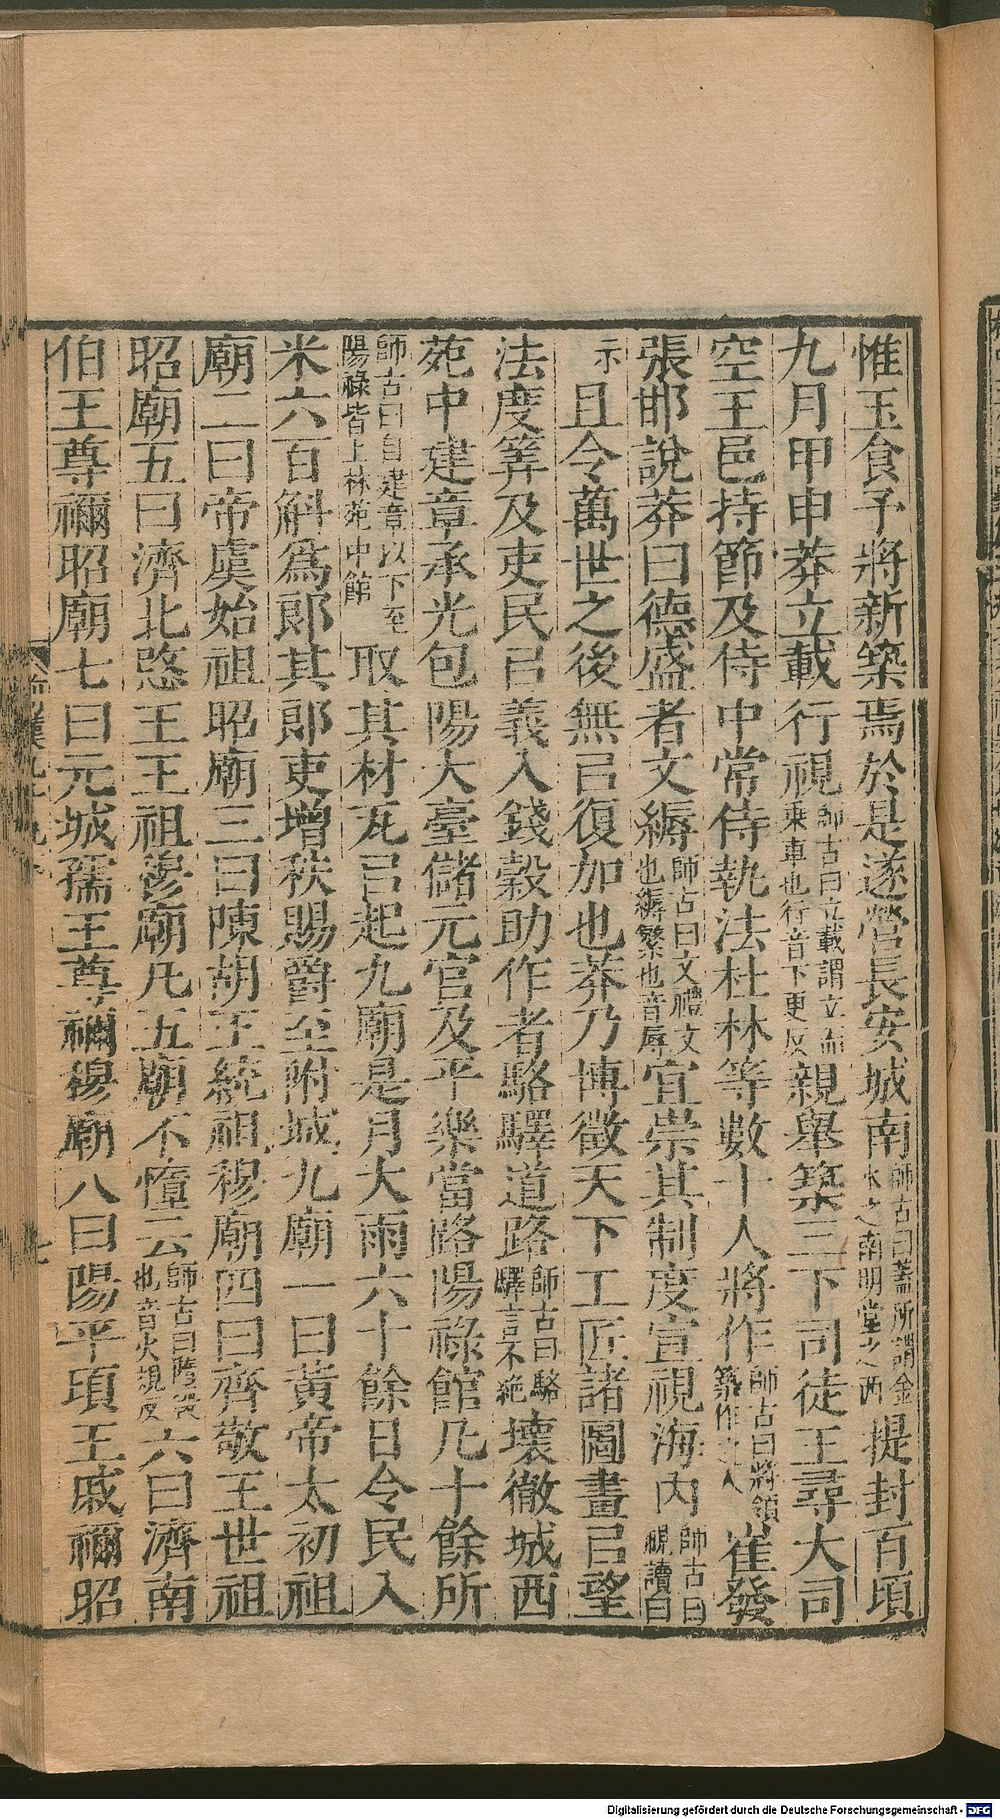 惟玉食予將新築焉於是遂營長安城南師古曰蓋所謂金水之南明堂之西提封百頃
九月甲申莽立載行視師古曰立載謂立而乗車也行音下更反親舉築三下司徒王尋大司
空王邑持節及侍中常侍執法杜林等數十人將作師古曰將領築作之人崔發
張邯說莽曰德盛者文縟師古曰文禮文也縟繁也音辱宜崇其制度宣視海内師古曰視讀曰
示且令萬世之後無㠯復加也莽乃博徵天下工匠諸圖畫㠯望
法度筭及吏民㠯義入錢穀助作者駱驛道路師古曰駱驛言不絶壞徹城西
苑中建章承光包陽大臺儲元宫及平樂當路陽祿館凡十餘所
師古曰自建章以下至陽祿皆上林苑中館取其材瓦㠯起九廟是月大雨六十餘日令民入
米六百斛為郎其郎吏增秩賜爵至附城九廟一曰黄帝太初祖
廟二曰帝虞始祖昭廟三曰陳胡王統祖穆廟四曰齊敬王世祖
昭廟五曰濟北愍王王祖穆廟凡五廟不墮云師古曰墮毁也音火規反六曰濟南
伯王尊禰昭廟七曰元城孺王尊禰穆廟八曰陽平頃王戚禰昭
Digitalisierung gefördert durch die Deutsche Forschungsgemeinschaft - DFG